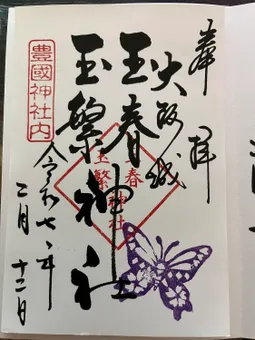 奉拝
大阪城
玉春
玉繁
神社
玉春
玉繁
神社
豊國神社内
令和七年
二月十二日